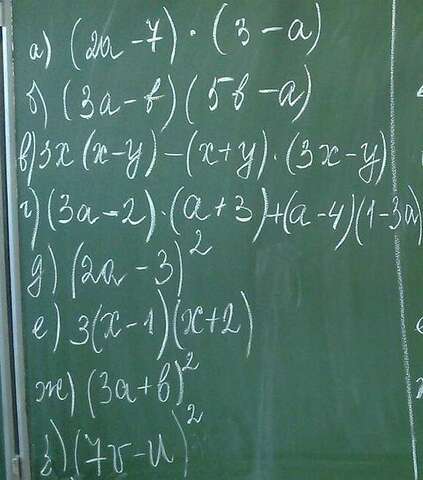 а) (2a - 7) · (3 - a)
б) (3a - b) (5b - a)
в) 3x (x - y) - (x + y) · (3x - y)
г) (3a - 2) · (a + 3) + (a - 4) (1 - 3a)
д) (2a - 3)²
е) 3(x - 1)(x + 2)
ж) (3a + b)²
з) (7v - u)²